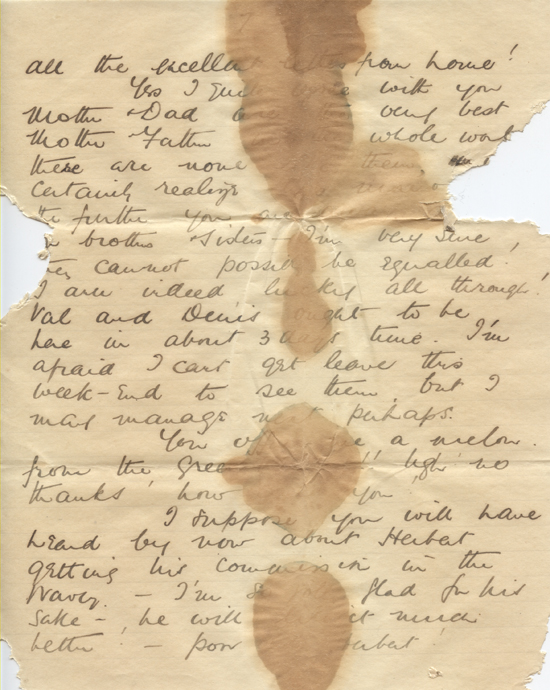 all the excellent letters from home!
Yes I quite agree with you
Mother Dad are the very best
Mother Father whole world
these are none
certainly realize
further you
brothers Sisters — I'm very sure,
they cannot possibly be equalled!
I am indeed lucky all through!
Val and Denis ought to be
here in about 3 days time. I'm
afraid I can't get leave this
week-end to see them, but I
may manage next perhaps.
You a melon
from the no
thanks, how you
I suppose you will have
heard by now about Herbert
getting his commission in the
Navy. — I'm so glad for his
sake — he will it much
better! — poor